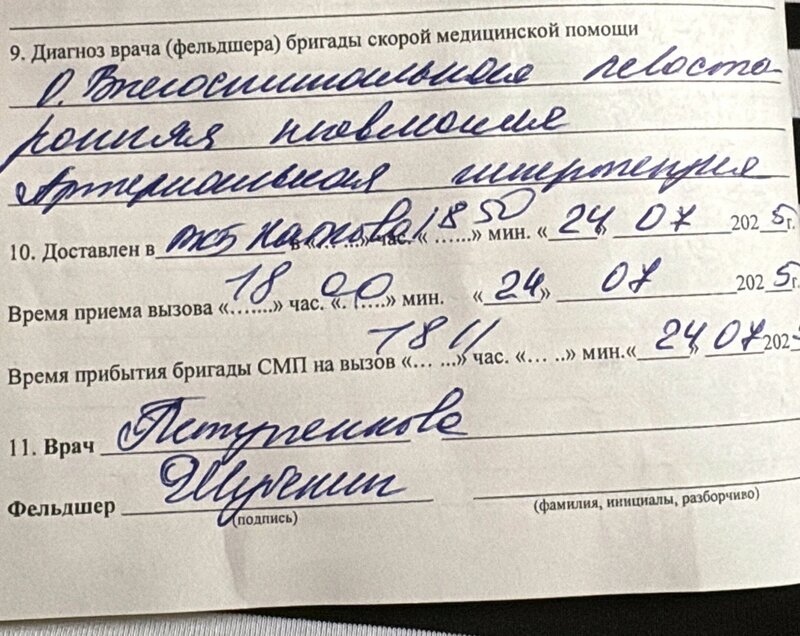 9. Диагноз врача (фельдшера) бригады скорой медицинской помощи
О. Внегоспитальная левосто
ронняя пневмония
Артериальная гипертензия
10. Доставлен в в «......» час. «......» мин. «24» 07 2025 г.
18 50
Время приема вызова «18» час. «00» мин. «24» 07 2025 г.
Время прибытия бригады СМП на вызов «18» час. «11» мин. «24» 07 2025
11. Врач
Фельдшер
(подпись) (фамилия, инициалы, разборчиво)